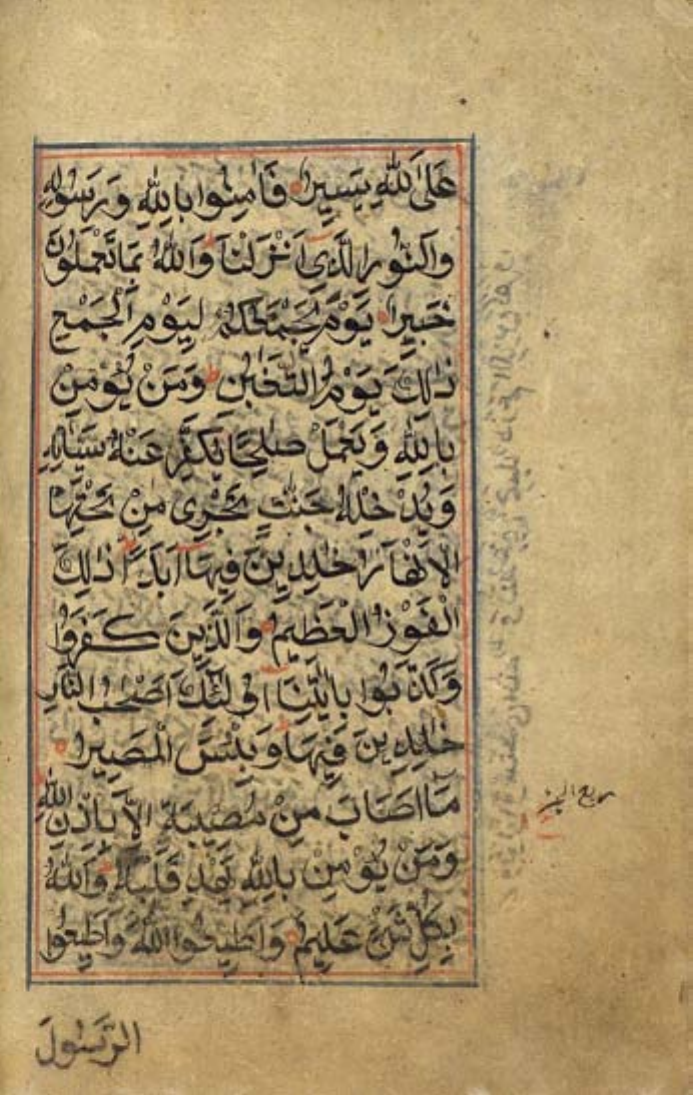 عَلَى اللهِ يَسِيرٌ فَاٰمِنُوا بِاللهِ وَرَسُولِهِ
وَالنُّورِ الَّذِى اَنْزَلْنَا وَاللهُ بِمَا تَعْمَلُونَ
خَبِيرٌ يَوْمَ يَجْمَعُكُمْ لِيَوْمِ الْجَمْعِ
ذٰلِكَ يَوْمُ التَّغَابُنِ وَمَنْ يُؤْمِنْ
بِاللهِ وَيَعْمَلْ صٰلِحًا يُكَفِّرْ عَنْهُ سَيِّاٰتِهِ
وَيُدْخِلْهُ جَنّٰتٍ تَجْرِى مِنْ تَحْتِهَا
الْاَنْهَارُ خٰلِدِينَ فِيهَا اَبَدًا ذٰلِكَ
الْفَوْزُ الْعَظِيمُ وَالَّذِينَ كَفَرُوا
وَكَذَّبُوا بِاٰيٰتِنَا اُولٰئِكَ اَصْحٰبُ النَّارِ
خٰلِدِينَ فِيهَا وَبِئْسَ الْمَصِيرُ
مَا اَصَابَ مِنْ مُصِيبَةٍ اِلَّا بِاِذْنِ اللهِ
وَمَنْ يُؤْمِنْ بِاللهِ يَهْدِ قَلْبَهُ وَاللهُ
بِكُلِّ شَىْءٍ عَلِيمٌ وَاَطِيعُوا اللهَ وَاَطِيعُوا
الرَّسُولَ